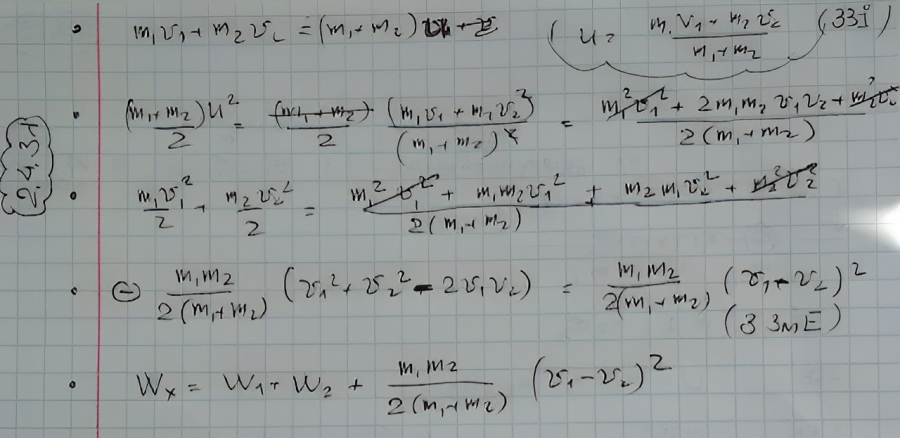 m₁v₁ + m₂v₂ = (m₁+m₂) u ( u = (m₁v₁ + m₂v₂)/(m₁+m₂) (ЗЗІ)
2.4.31
(m₁+m₂)u²/2 = (m₁+m₂)/2 · (m₁v₁ + m₂v₂)²/(m₁+m₂)² = (m₁²v₁² + 2m₁m₂v₁v₂ + m₂²v₂²)/(2(m₁+m₂))
m₁v₁²/2 + m₂v₂²/2 = (m₁²v₁² + m₁m₂v₁² + m₂m₁v₂² + m₂²v₂²)/(2(m₁+m₂))
⊖ m₁m₂/(2(m₁+m₂)) (v₁² + v₂² - 2v₁v₂) = m₁m₂/(2(m₁+m₂)) (v₁ - v₂)²
(З ЗМЕ)
Wₓ = W₁ + W₂ + m₁m₂/(2(m₁+m₂)) (v₁ - v₂)²